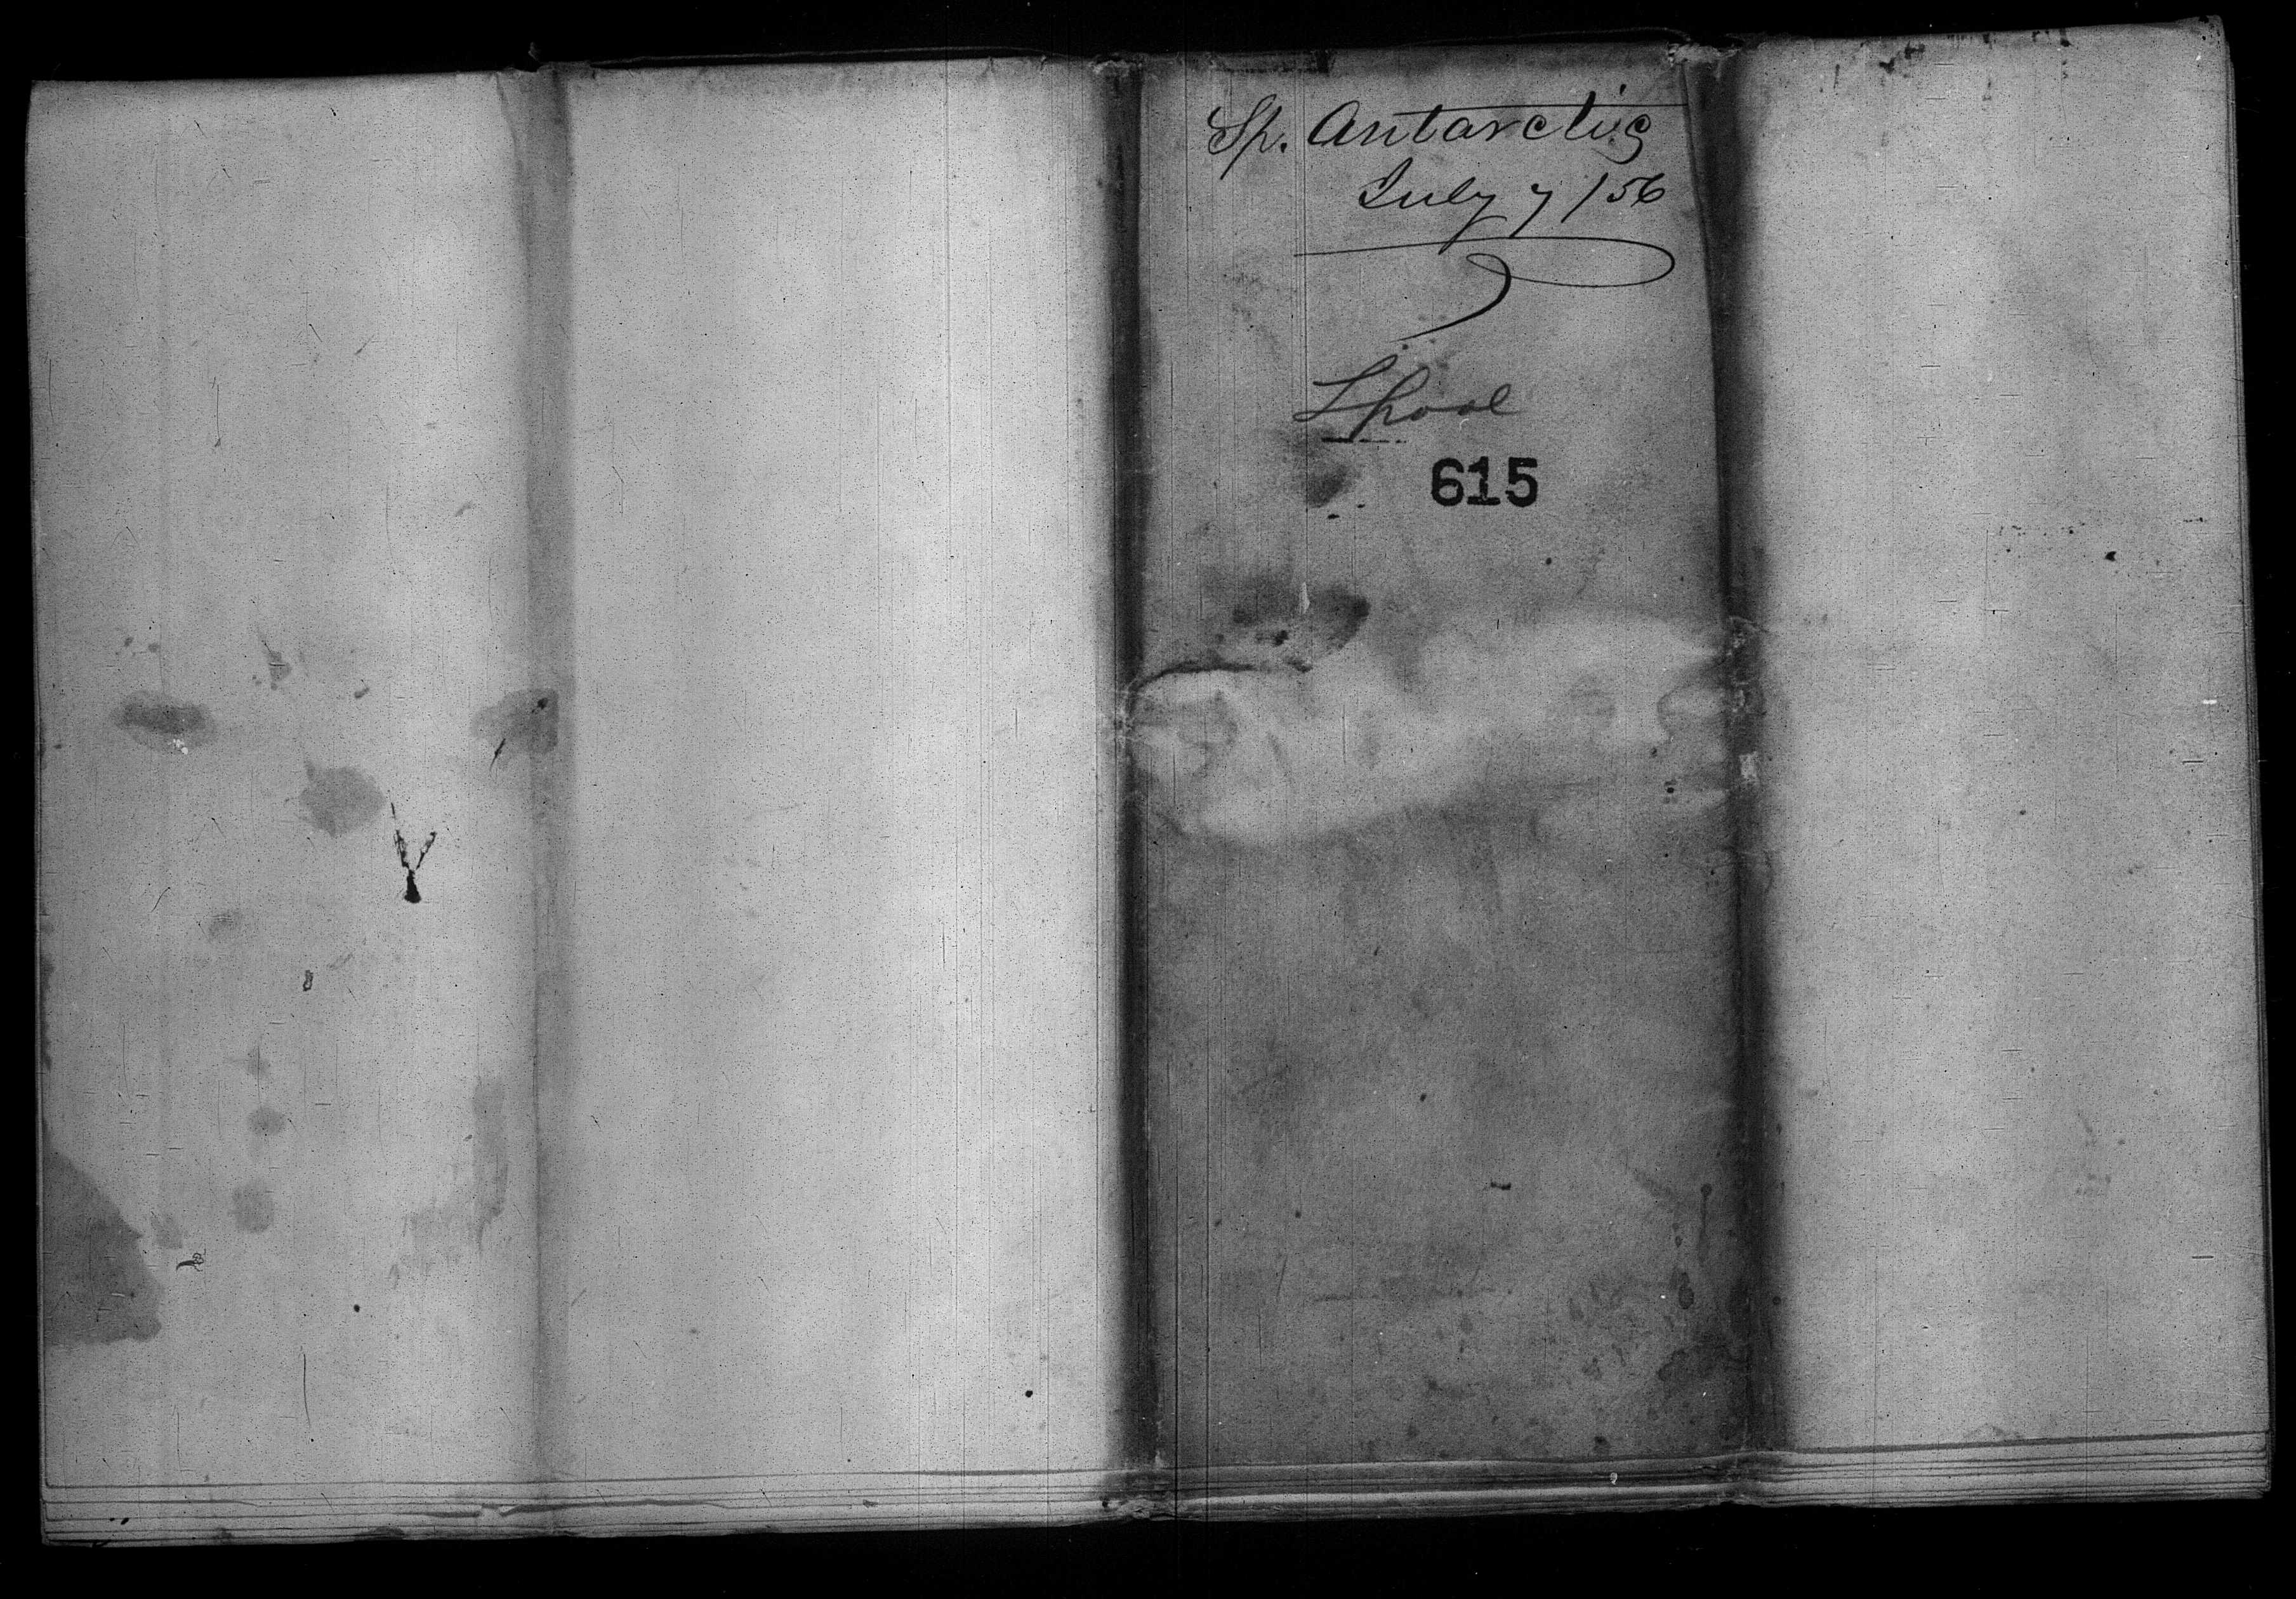 Sp. Antarctic
July 7/56
Lpool
615